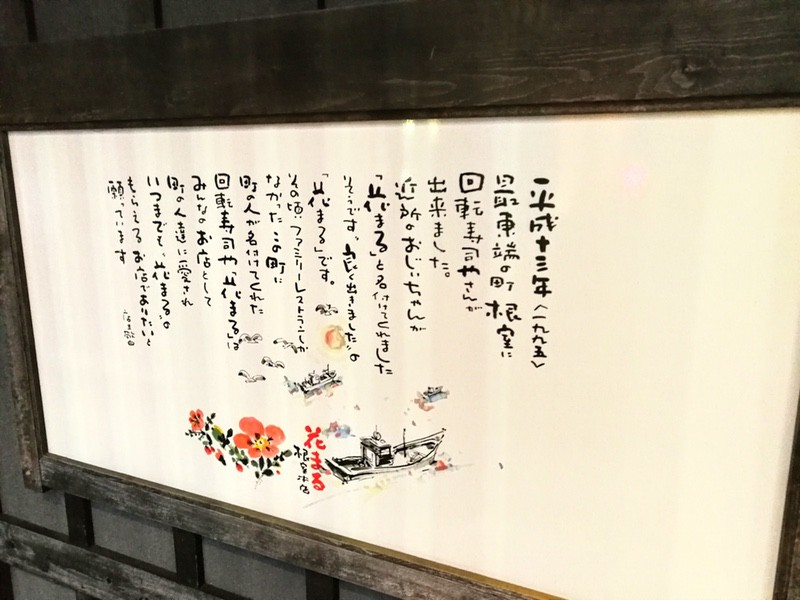 平成十三年〈一九九五〉
最東端の町 根室に
回転寿司やさんが
出来ました。
近所のおじいちゃんが
「花まる」と名付けてくれました
そうです。"良く出きました"の
「花まる」です。
その頃、ファミリーレストランしか
なかった この町に
町の人が名付けてくれた
回転寿司や「花まる」は
みんなのお店として
町の人達に愛され
いつまでも、"花まる"の
もらえるお店でありたいと
願っています
店主敬白
花まる
根室本店